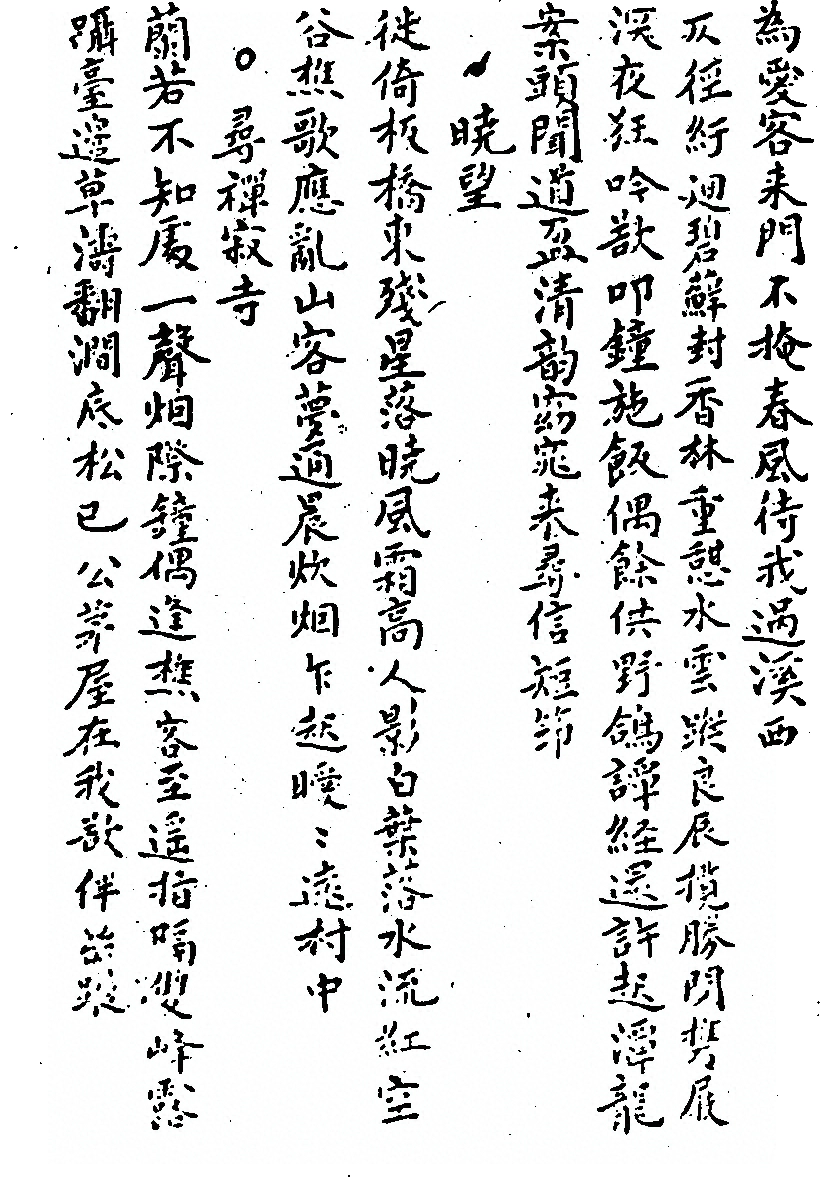 為愛客来門不掩春風待我過溪西
仄徑紆迴碧蘚封香林重憩水雲蹤良辰攬勝閒携屐
深夜狂吟歎叩鐘施飯偶餘供野鴿譚経還許起潭龍
案頭聞道盈清韵窈窕来尋信短笻
曉望
徙倚板橋東殘星落曉風霜高人影白葉落水流紅空
谷樵歌應亂山客夢通晨炊烟乍起曖〻遠村中
○尋禪寂寺
蘭若不知處一聲烟際鐘偶逢樵客至遥指隔雙峰露
躡臺邊草濤翻澗底松已公茅屋在我欲伴